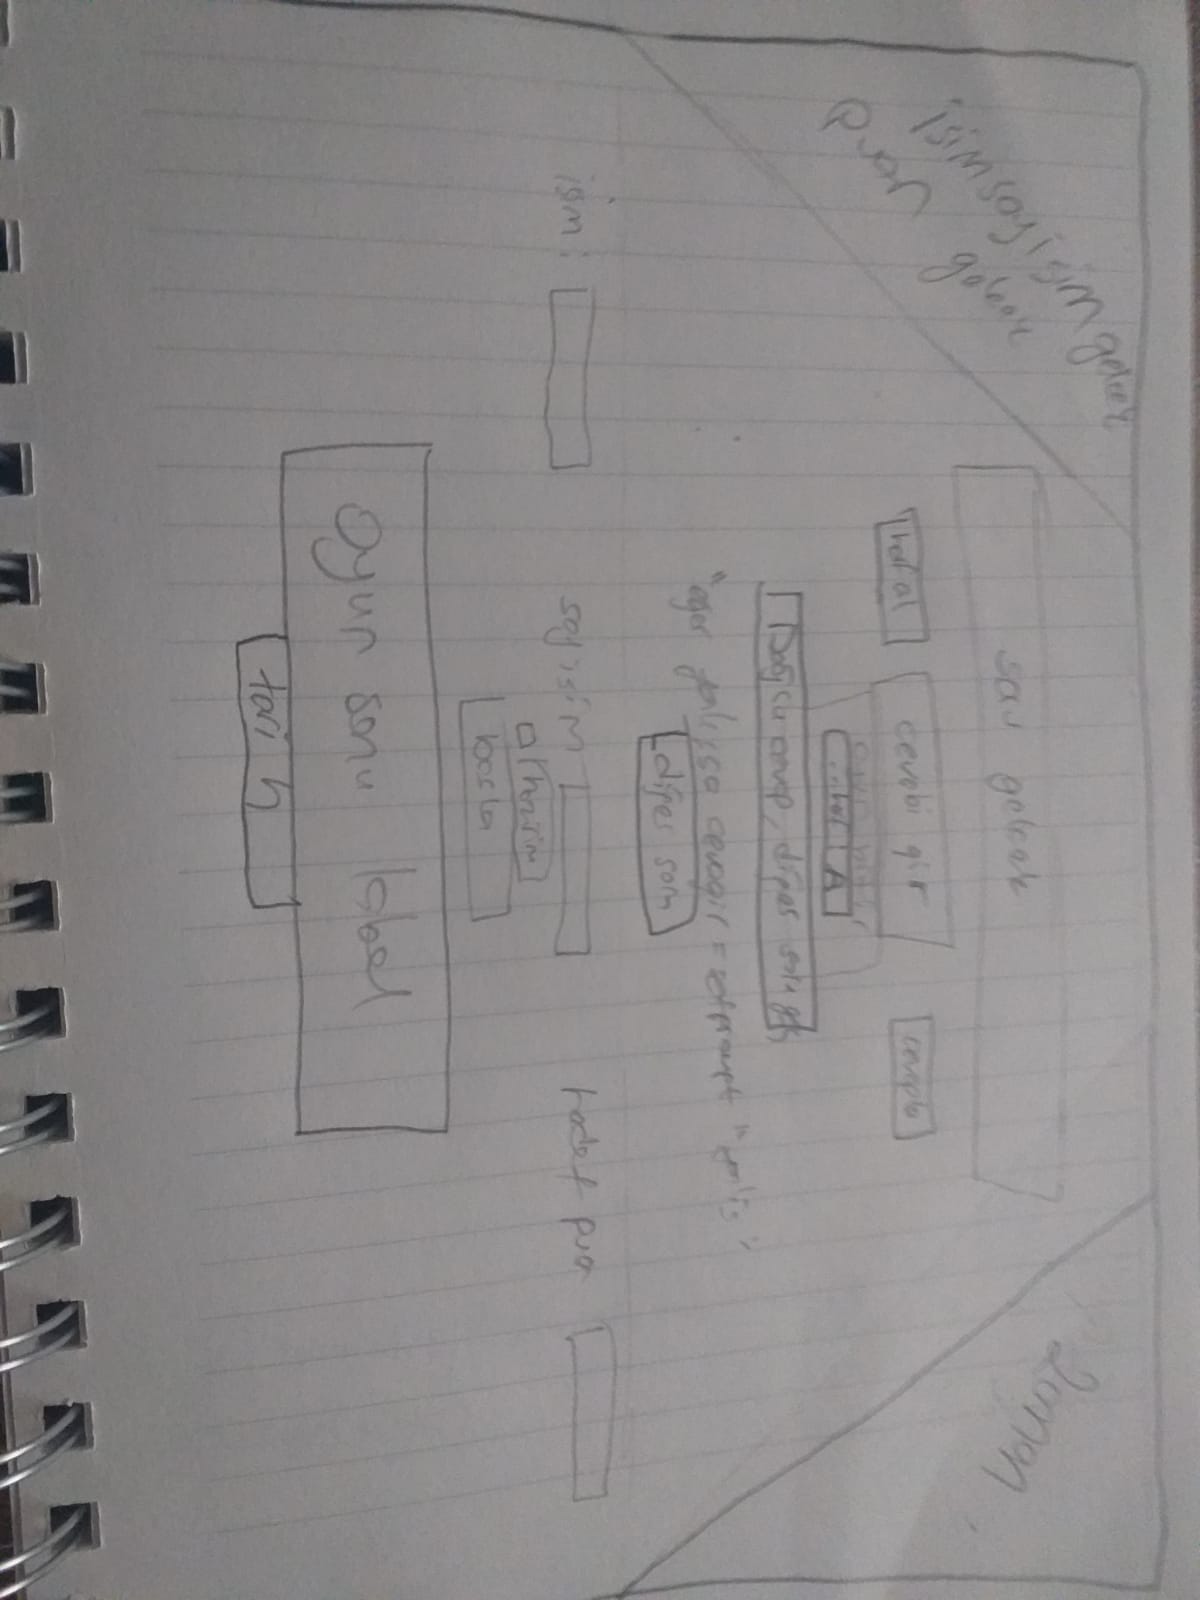 isim soyisim gelecek
puan gelecek
Zaman
soru gelecek
harf al
cevabı gir
cevapla
harf A
Doğru cevap, diğer soru geç
"eğer yanlışsa cevapgir = setprompt "yanlış"
diğer soru
isim:
soyisim
hedef pua
hazırım
başla
oyun sonu label
tarih